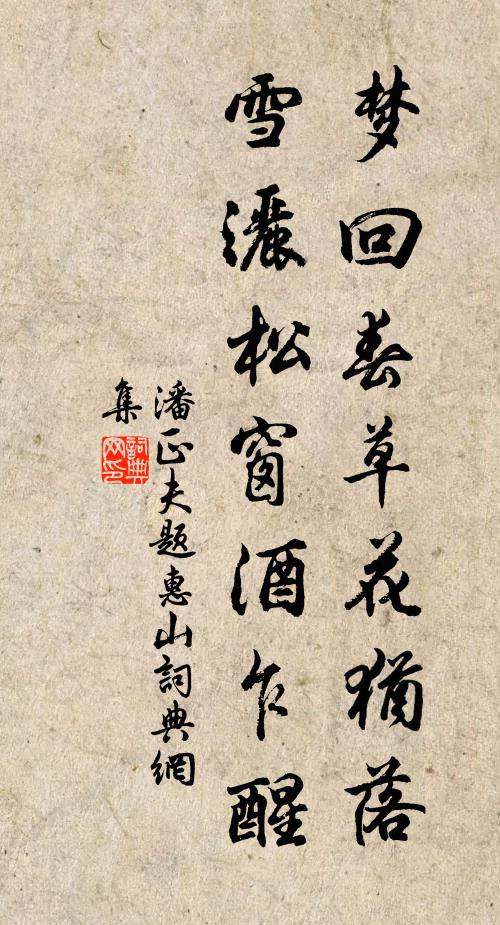 梦回春草花犹落
雪灑松窗酒乍醒
潘正夫题惠山詞典網
集
詞典
网印